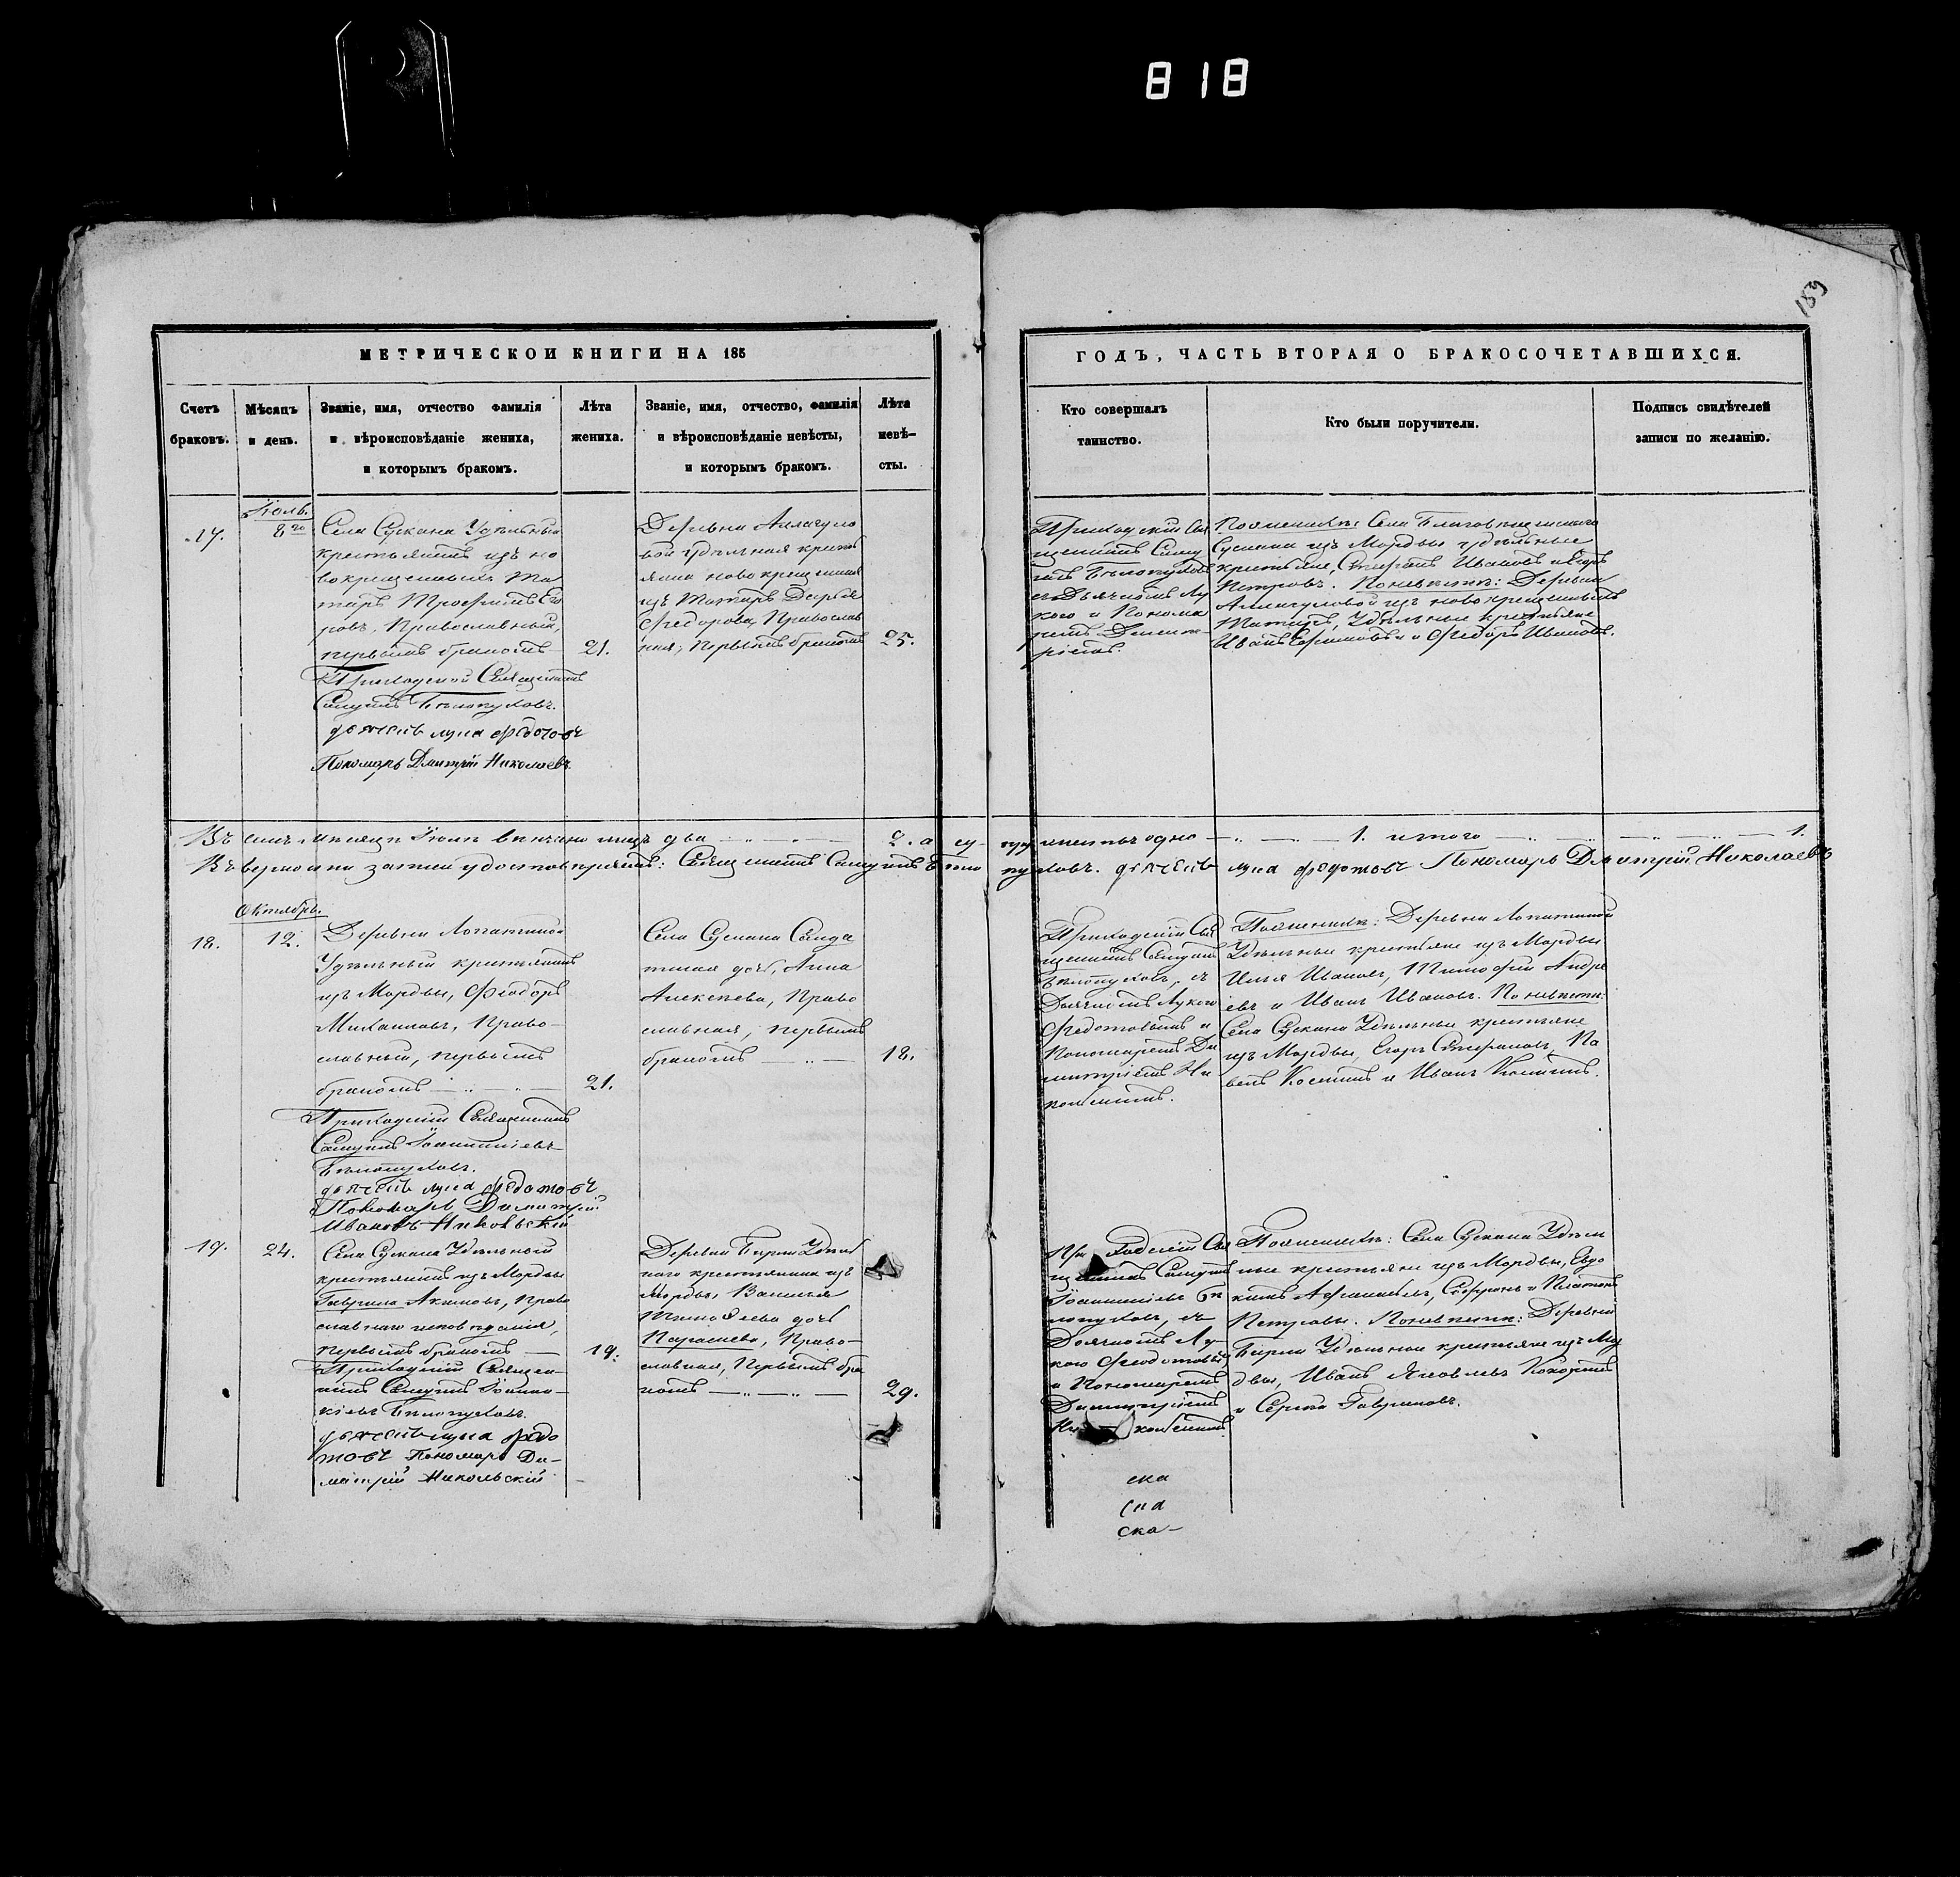 818
189
МЕТРИЧЕСКОЙ КНИГИ НА 185
ГОДЪ, ЧАСТЬ ВТОРАЯ О БРАКОСОЧЕТАВШИХСЯ.
Счетъ
браковъ.
Мѣсяцъ
и день.
Званіе, имя, отчество фамилія
и вѣроисповѣданіе жениха,
и которымъ бракомъ.
Лѣта
жениха.
Званіе, имя, отчество, фамилія
и вѣроисповѣданіе невѣсты,
и которымъ бракомъ.
Лѣта
невѣ-
сты.
Кто совершалъ
таинство.
Кто были поручители.
Подпись свидѣтелей
записи по желанію.
17.
Іюль.
8го
Села Сускана Удѣльный
крестьянинъ изъ но
вокрещеныхъ Та
таръ Трофимъ Его
ровъ, Православный,
первымъ бракомъ
21.
Приходской Священникъ
Самуилъ Бѣлопуховъ.
дьячекъ лука федотовъ
Пономарь Дмитрій Николаевъ.
Деревни Аллагуло
вой удѣльная кресть
янка новокрещенная
изъ Татаръ Дарья
Федорова, Православ
ная, первымъ бракомъ
25.
Приходскій Свя
щенникъ Саму
илъ Бѣлопуховъ
съ Дьячкомъ Лу
кою и Понома
ремъ Димит-
ріемъ.
По женихѣ: Села Благовѣщенскаго
Сускана изъ Мордвы удѣльные
крестьяне, Стефанъ Ивановъ и Егоръ
Петровъ. По невѣстѣ: Деревни
Аллагуловой изъ новокрещеныхъ
Татаръ, Удѣльные крестьяне
Иванъ Ефимовъ и Федоръ Ивановъ.
Въ семъ мѣсяцѣ Іюлѣ вѣнчано лицъ два 2. а су-
пружествъ одно 1. итого 1.
Въ вѣрности записи удостовѣряемъ: Священникъ Самуилъ Бѣло
пуховъ. дьячекъ лука федотовъ Пономарь Дмитрій Николаевъ
18.
Октябрь.
12.
Деревни Лопатиной
Удѣльный крестьянинъ
изъ Мордвы, Феодоръ
Михаиловъ, Право-
славный, первымъ
бракомъ
21.
Приходскій Священникъ
Самуилъ Іоанникіевъ
Бѣлопуховъ.
дьячекъ лука федотовъ
Пономарь Димитрій
Ивановъ Никольскій
Села Сускана Солда
тская дочь, Анна
Алексѣева, Право
славная, первымъ
бракомъ
18.
Приходскій Свя
щенникъ Самуилъ
Бѣлопуховъ, съ
Дьячкомъ Лукою
Федотовымъ и
Пономаремъ Ди
митріемъ Ни
кольскимъ.
По женихѣ: Деревни Лопатиной
Удѣльные крестьяне изъ Мордвы
Илья Ивановъ, Тимофей Андре
евъ и Иванъ Ивановъ. По невѣстѣ:
Села Сускана Удѣльные крестьяне
изъ Мордвы, Егоръ Стефановъ, Па
велъ Косминъ и Иванъ Косминъ.
19.
24.
Села Сускана Удѣльный
крестьянинъ изъ Мордвы
Гаврила Акимовъ, Право
славнаго исповѣданія,
первымъ бракомъ
19.
Приходскій Священ-
никъ Самуилъ Іоанни-
кіевъ Бѣлопуховъ.
дьячекъ лука федо
товъ Пономарь Ди-
митрій Никольскій
Деревни Бирли Удѣль
наго крестьянина изъ
Мордвы, Василья
Тимофеева дочь
Параскева, Право-
славная, первымъ бра
комъ
29.
Приходскій Свя
щенникъ Самуилъ
Іоанникіевъ Бѣ
лопуховъ, съ
Дьячкомъ Лу-
кою Феодотовымъ
и Пономаремъ
Димитріемъ
Никольскимъ
По женихѣ: Села Сускана Удѣль
ные крестьяне изъ Мордвы, Евдо
кимъ Афанасьевъ, Стефанъ и Платонъ
Петровы. По невѣстѣ: Деревни
Бирли Удѣльные крестьяне изъ Мор
двы, Иванъ Яковлевъ
и Сергей Гавриловъ.
ска
ска-